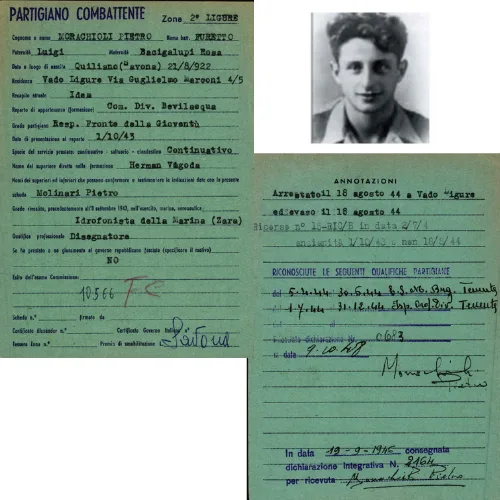 PARTIGIANO COMBATTENTE Zona 2° LIGURE
Cognome e nome MORACHIOLI PIETRO Nome batt. FURETTO
Paternità Luigi Maternità Bacigalupi Rosa
Data e luogo di nascita Quiliano(Savona) 21/8/922
Residenza Vado Ligure Via Guglielmo Marconi 4/5
Recapito attuale Idem
Reparto di appartenenza (formazione) Com. Div. Bevilacqua
Grado partigiano Resp. Fronte della Gioventù
Data di presentazione al reparto 1/10/43
Specie del servizio prestato: continuativo - saltuario - clandestino Continuativo
Nome del superiore diretto nella formazione Herman Vagoda
Nomi dei superiori ed inferiori che possono confermare o testimoniare le indicazioni date con la presente
scheda Molinari Pietro
Grado rivestito, precedentemente all'8 settembre 1943, nell'esercito, marina, aeronautica
Idrofonista della Marina (Zara)
Qualifica professionale Disegnatore
Se ha prestato o no giuramento al governo repubblicano fascista (specificare il motivo)
NO
Esito dell'esame Commissione:
10566 FC
Scheda n.° firmata da
Certificato Alexander n.° Certificato Governo Italiano n.°
Tessera Corpo n.° Premio di smobilitazione L. Savona
ANNOTAZIONI
Arrestato il 18 agosto 44 a Vado Ligure
ed evaso il 18 agosto 44
anzianità 1/10/43 e non 18/8/44
RICONOSCIUTE LE SEGUENTI QUALIFICHE PARTIGIANE
dal 5.4.44 30.6.44
dal 1.7.44 31.12.44
dal di
0683
in data 9.10.48
Morachioli
Pietro
In data 19-9-1946 consegnata
dichiarazione integrativa N. 2164
per ricevuta Morachioli Pietro